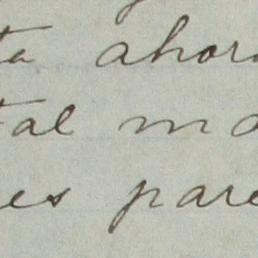 ta ahora
tal ma
es pare